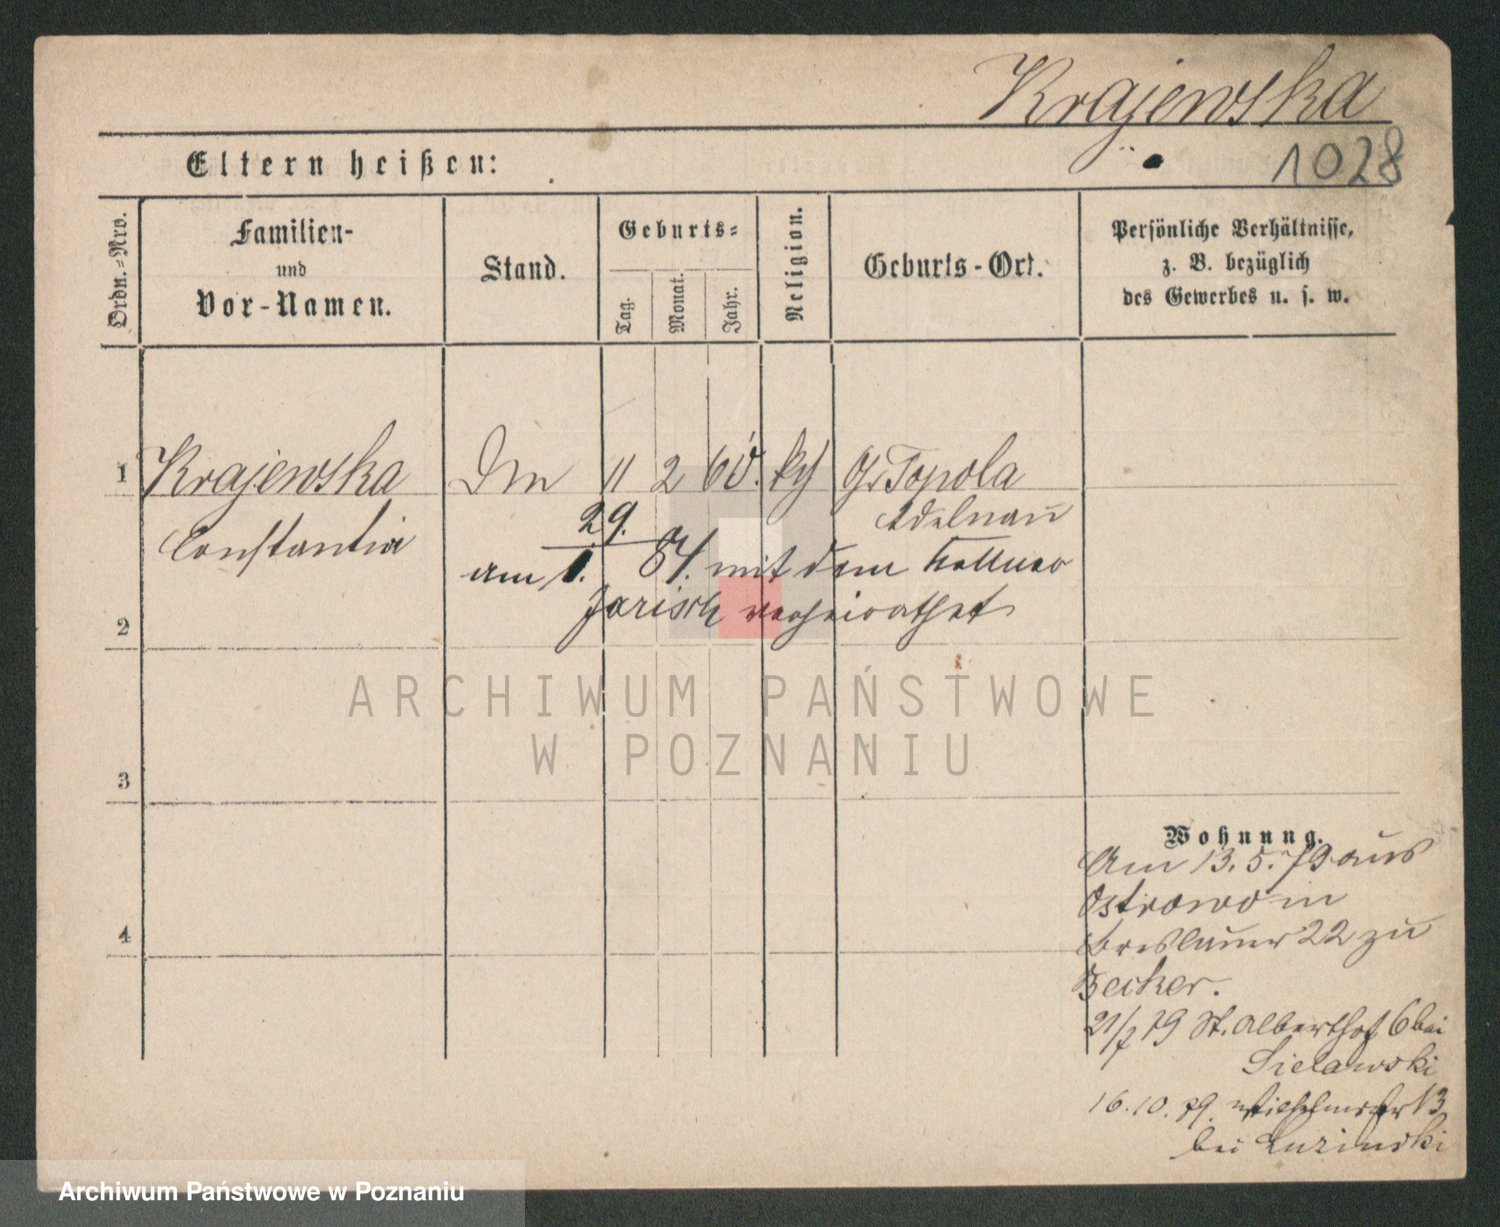 Krajewska
1028
Eltern heißen:
Ordn.=Nro.
Familien-
und
Vor-Namen.
Stand.
Geburts=
Tag.
Monat.
Jahr.
Religion.
Geburts-Ort.
Persönliche Verhältnisse,
z. B. bezüglich
des Gewerbes u. s. w.
1 Krajewska 11 2 60. Gr Topola
Constantia Adelnau
29.
am 1. 84. mit dem Kellner
Jarisch verheirathet
2
ARCHIWUM PAŃSTWOWE
W POZNANIU
3
Wohnung.
Am 13. 5. 79 aus
Ostrowo in
4
Breslauer 22 zu
Becker.
21/7 79 St. Alberthof 6 bei
Sielawski
16. 10. 79. 13
bei
Archiwum Państwowe w Poznaniu